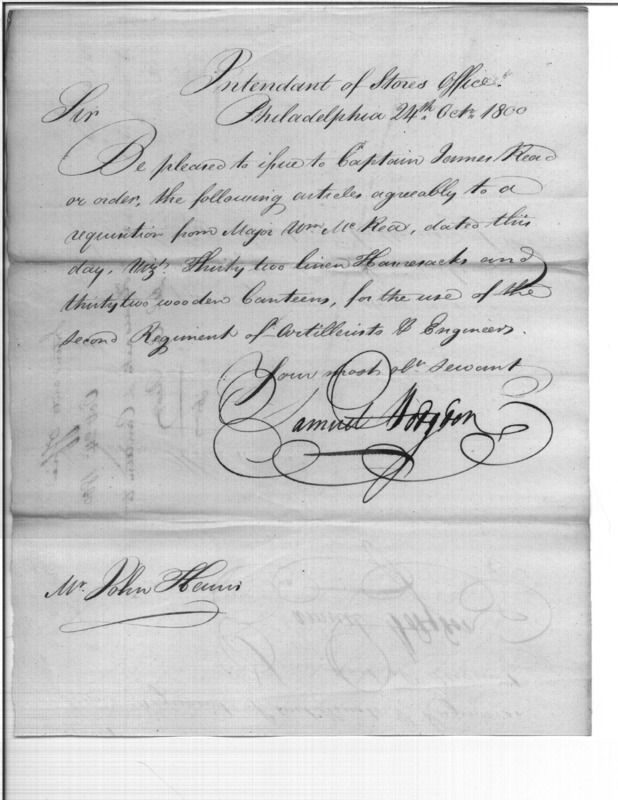 Intendant of Stores Office.
Philadelphia 24th. Octr. 1800
Sir
Be pleased to issue to Captain James Read
or order, the following articles agreeably to a
requisition from Major Wm. Mc Rea, dated this
day, Vizt. Thirty two linen Haversacks and
thirty two wooden Canteens, for the use of the
second Regiment of Artillerists & Engineers.
Your most obt. servant
Samuel Hodgdon
Mr. John Harris